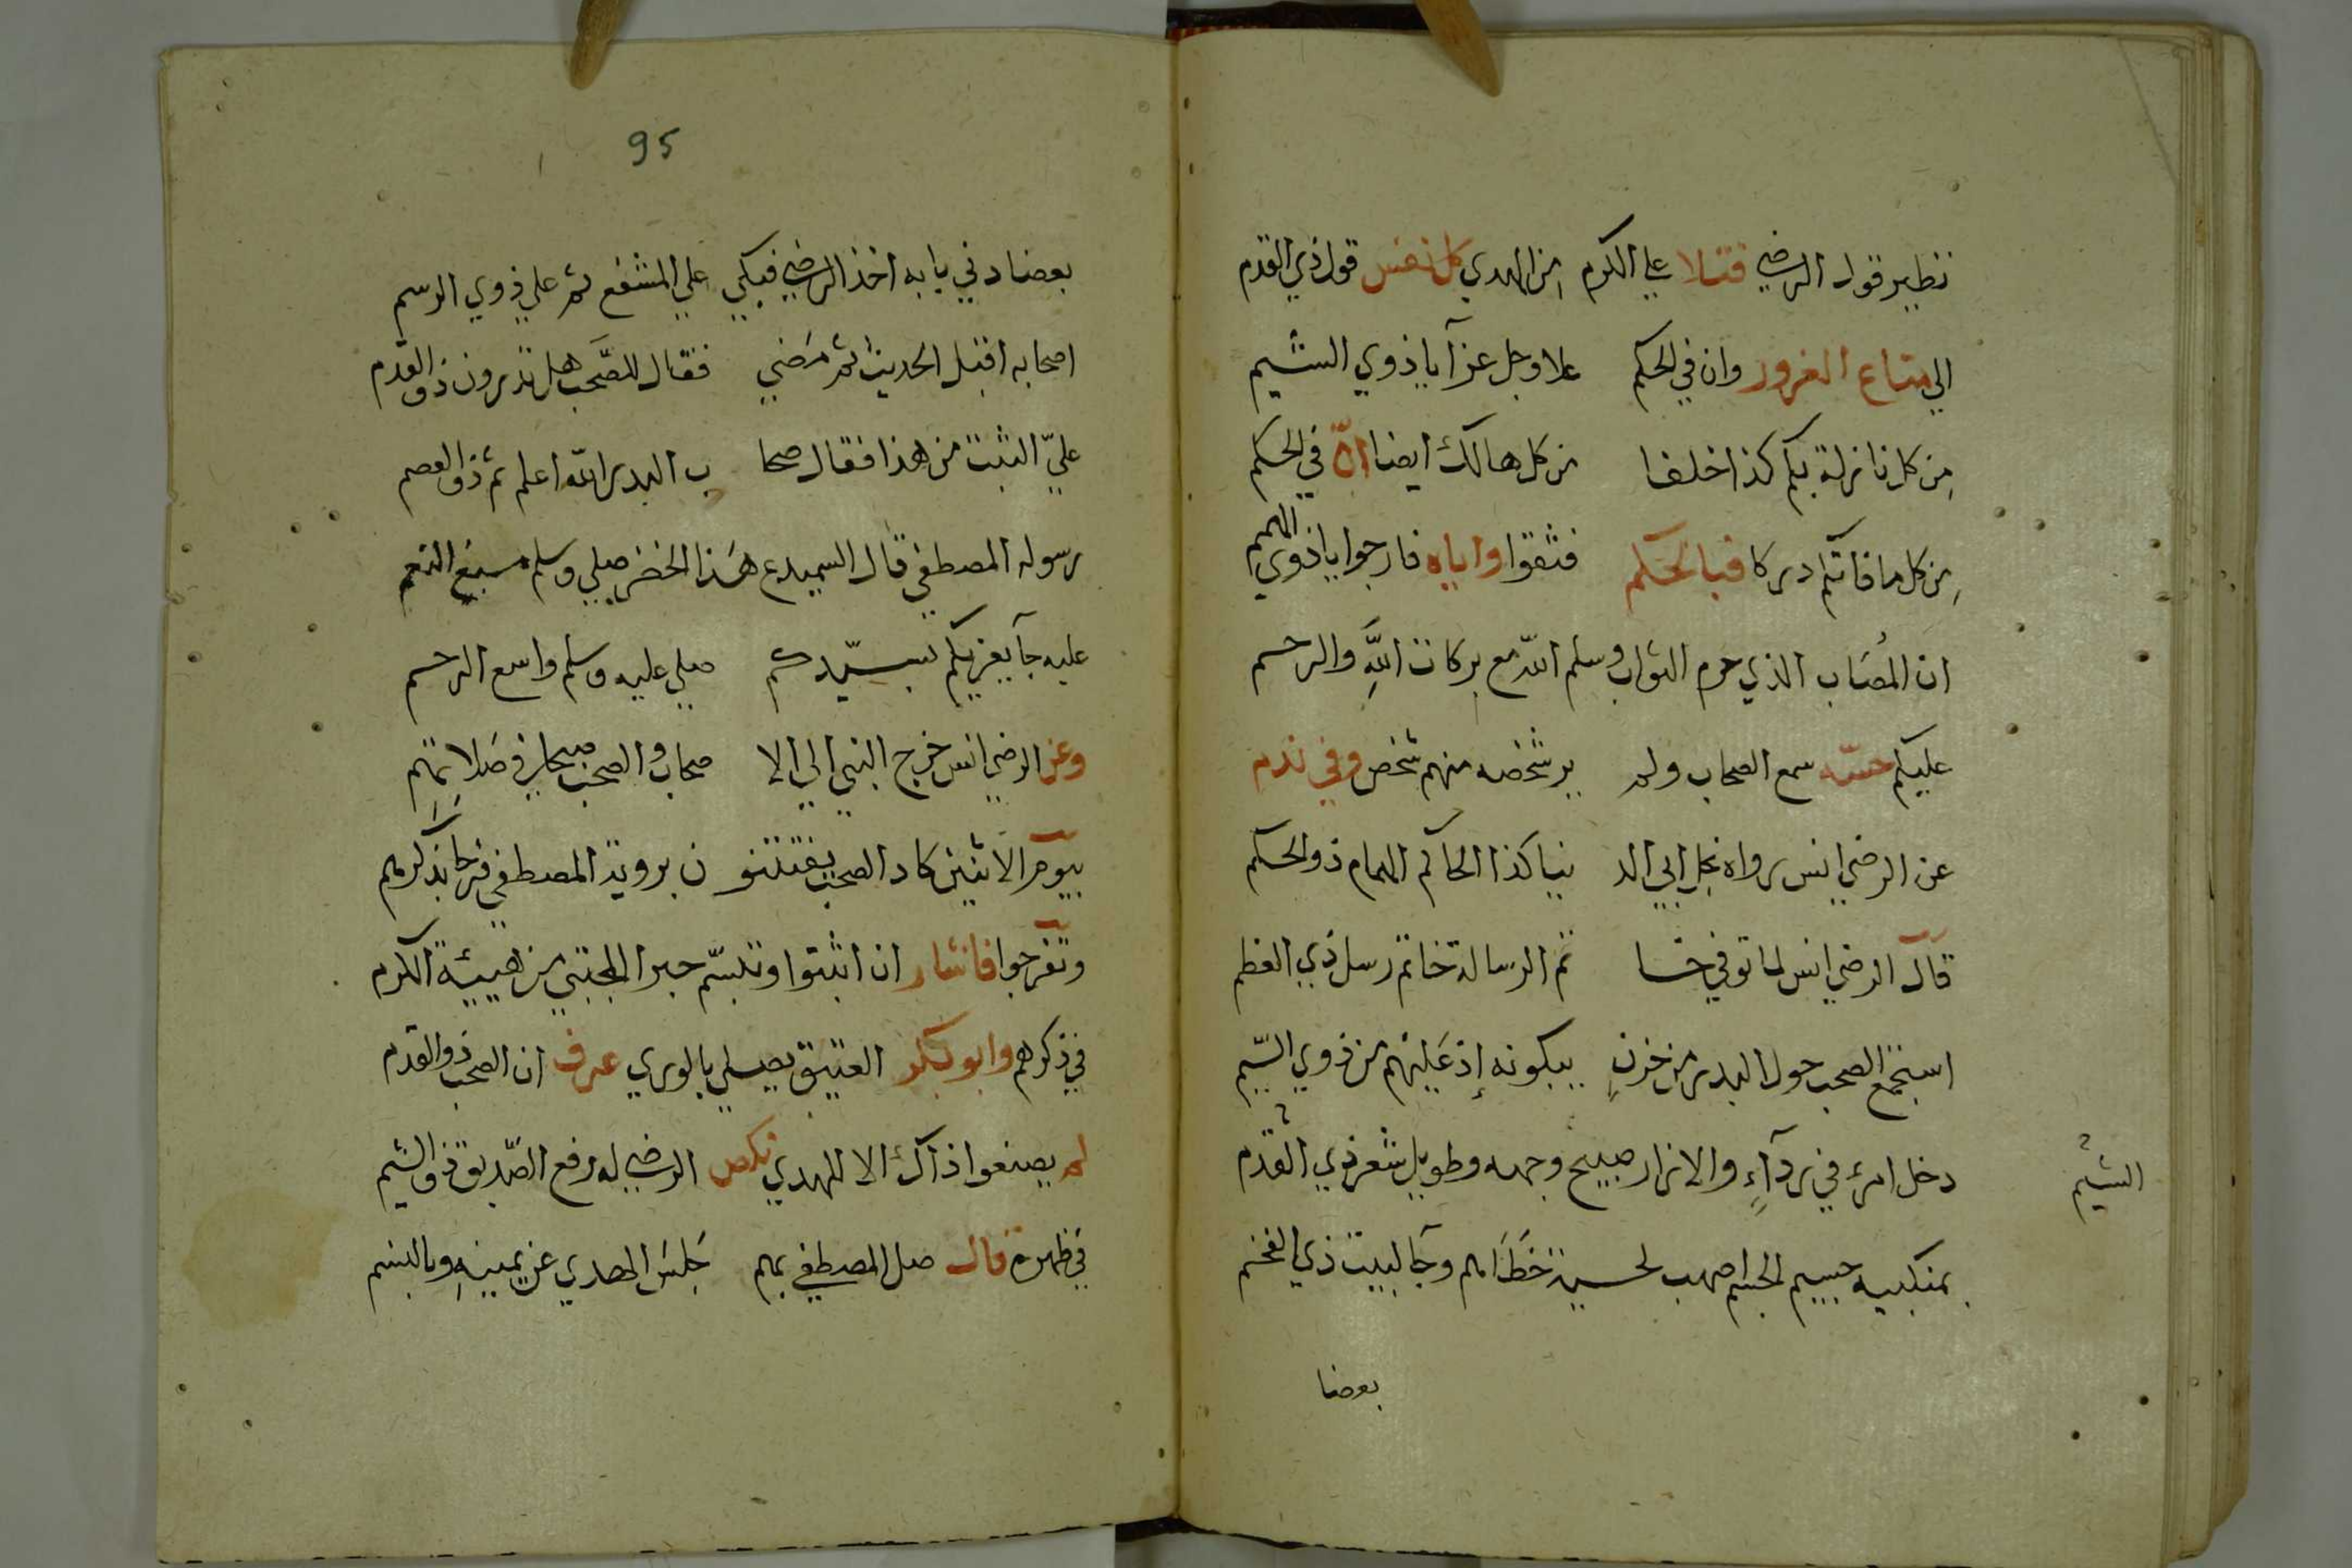 نظير قول الرضي فتلا علي الكرم من الهدي كل نفس قول ذي القدم
الي متاع الغرور وان في الحكم علا وجل عزآ يا ذوي الشيم
من كل نازلة بكم كذا خلفا من كل هالك ايضا انّ في الحكم
من كل ما فاتكم دركا فبالحكم فثقوا واياه فارجوا يا ذوي الهمم
ان المُصَاب الذي حرم الثواب وسلم اللّه مع بركات اللّهِ والرحم
عليكم حسّه سمع الصحاب ولم ير شخصه منهم شخص وفي ندم
عن الرضي انس رواه نجل ابي الد نيا كذا الحاكم الهمام ذو الحكم
قال الرضي انس لما توفي خا تم الرسالة خاتم رسل ذي العظم
استجمع الصحب حول البدر من حزنٍ يبكونه إذ عَليهم من ذوي الشيم
دخل امرء في ردآءٍ والازار صبيح وجهه وطويل شعر ذي القدم
الشيم
بمنكبيه جسيم الجسم اصهب لحسية خَطَاهم وجا لبيت ذي الفخم
بعضا
95
بعضا دني بابه اخذ الرضي فبكي علي المشفع ثم علي ذوي الوسم
اصحابه اقبل الحديث ثم مَضي فقال للصَّحب هل تدرون ذو القدم
عليّ الثبت من هذا فقال صحا ب البدر اللّه اعلم ثم ذو العصم
رسوله المصطفي قال السميدع هَذا الخضر صلي وسلم مسبغ النعم
عليه جآ يعزيكم بسيّدكم صلي عليه وسلم واسع الرحم
وعن الرضي انس خرج النبي الي الا صحاب والصحب صبحا في صَلاتهم
بيوم الاثنين كاد الصحب يفتتنو ن برويَة المصطفي فرحا بذكرهم
وتفرجوا فاشار ان اثبتوا وتبسّم حبرا المجتبي من هيئة الكرم
في ذكرهم وابو بكر العتيق يصلي بالوري عرف ان الصحب ذو القدم
لم يصنعوا ذاك الا للهدي نكص الرضي له رفع الصّديق ذو الشيم
في ظهره قال صل المصطفي بهم جَلسَ الهدي عن يمينهِ وبالبنم